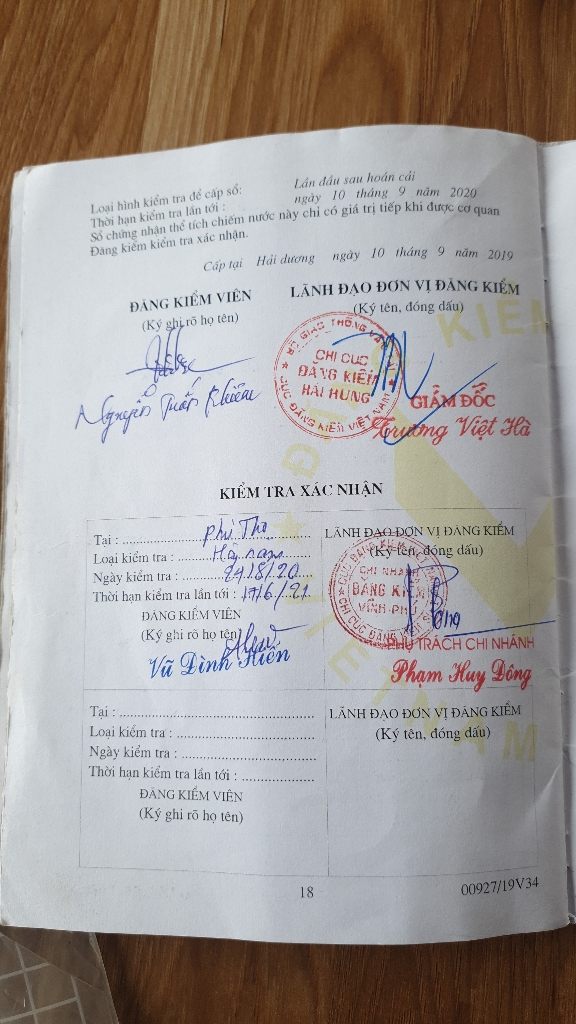 Loại hình kiểm tra để cấp sổ: Lần đầu sau hoán cải
Thời hạn kiểm tra lần tới : ngày 10 tháng 9 năm 2020
Sổ chứng nhận thể tích chiếm nước này chỉ có giá trị tiếp khi được cơ quan
Đăng kiểm kiểm tra xác nhận.
Cấp tại Hải dương ngày 10 tháng 9 năm 2019
ĐĂNG KIỂM VIÊN LÃNH ĐẠO ĐƠN VỊ ĐĂNG KIỂM
(Ký ghi rõ họ tên) (Ký tên, đóng dấu)
BỘ GIAO THÔNG VẬN
CHI CỤC
ĐĂNG KIỂM
HẢI HƯNG
CỤC ĐĂNG KIỂM VIỆT NAM
Nguyễn Tuấn
GIÁM ĐỐC
Trương Việt Hà
KIỂM TRA XÁC NHẬN
Tại : Phú Thọ LÃNH ĐẠO ĐƠN VỊ ĐĂNG KIỂM
Loại kiểm tra : Hà nam (Ký tên, đóng dấu)
Ngày kiểm tra : 24/8/20
Thời hạn kiểm tra lần tới : 17/6/21
CHI NHÁNH
ĐĂNG KIỂM
VĨNH PHÚ
ĐĂNG KIỂM VIÊN
(Ký ghi rõ họ tên)
Vũ Đình Hiến
PHỤ TRÁCH CHI NHÁNH
Phạm Huy Đông
Tại : LÃNH ĐẠO ĐƠN VỊ ĐĂNG KIỂM
Loại kiểm tra : (Ký tên, đóng dấu)
Ngày kiểm tra :
Thời hạn kiểm tra lần tới :
ĐĂNG KIỂM VIÊN
(Ký ghi rõ họ tên)
18
00927/19V34